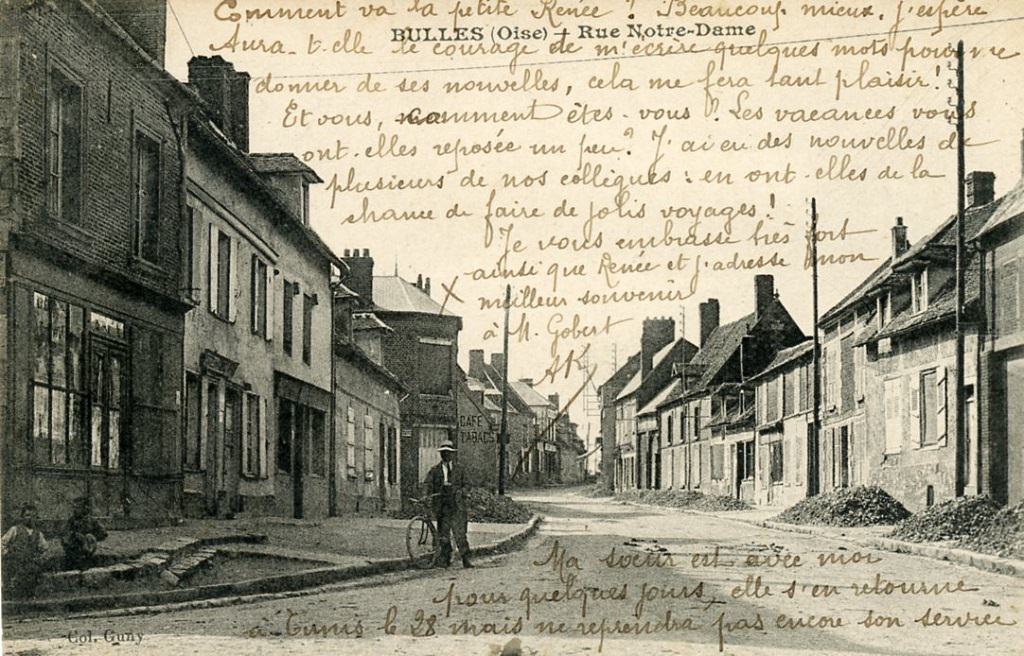 Comment va la petite Renée ? Beaucoup mieux, j'espère
BULLES (Oise) - Rue Notre-Dame
Aura-t-elle le courage de m'écrire quelques mots pour me
donner de ses nouvelles, cela me fera tant plaisir !
Et vous, comment êtes-vous ? Les vacances vous
ont-elles reposée un peu ? J'ai eu des nouvelles de
plusieurs de nos collègues : en ont-elles de la
chance de faire de jolis voyages !
Je vous embrasse très fort
ainsi que Renée et j'adresse mon
meilleur souvenir
à M. Gobert
AK
CAFÉ
TABACS
Ma soeur est avec moi
pour quelques jours, elle s'en retourne
à Tunis le 28 mais ne reprendra pas encore son service
Col. Guny